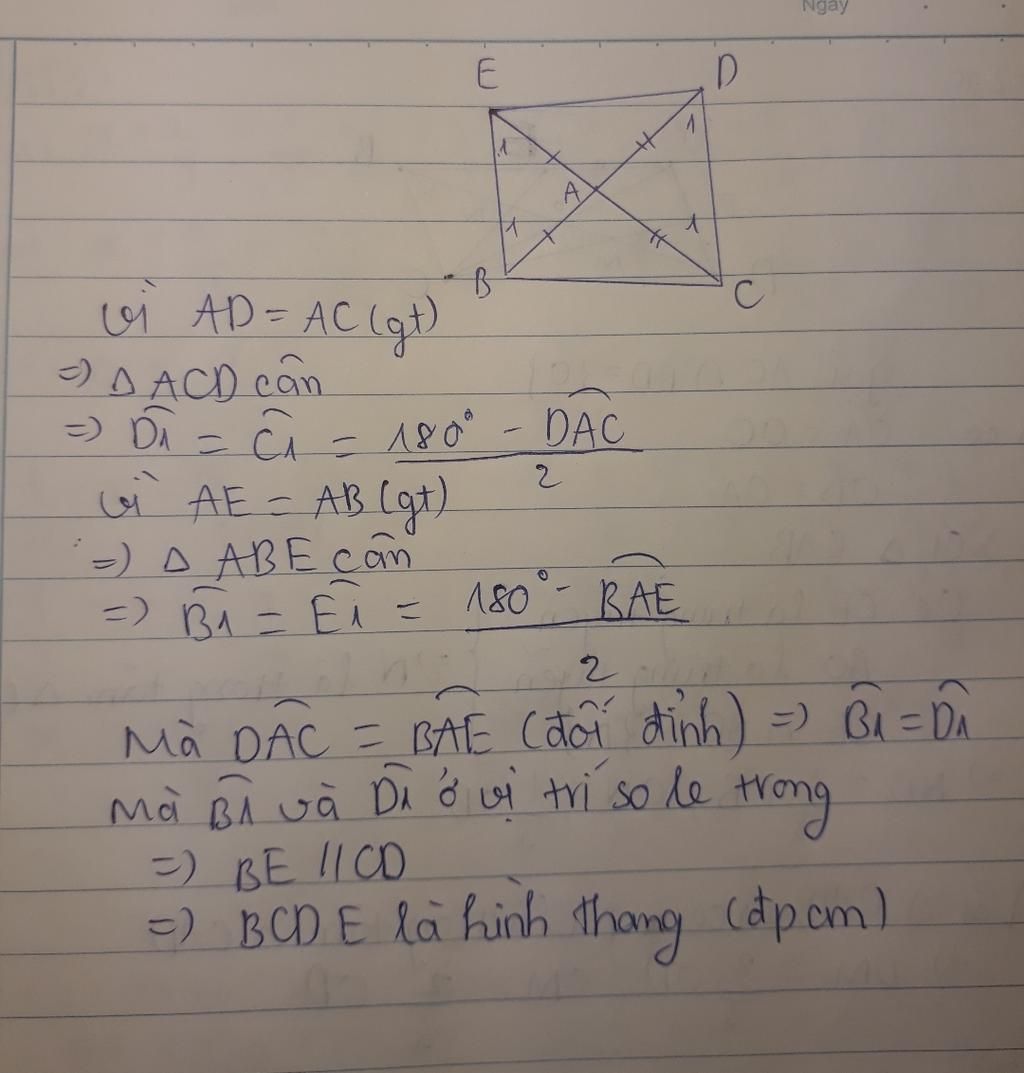 Ngày
E D
1 1
A
1 1
B C
Vì AD = AC (gt)
=> Δ ACD cân
=> D̂1 = Ĉ1 = (180° - D̂AC) / 2
Vì AE = AB (gt)
=> Δ ABE cân
=> B̂1 = Ê1 = (180° - B̂AE) / 2
Mà D̂AC = B̂AE (đối đỉnh) => B̂1 = D̂1
Mà B̂1 và D̂1 ở vị trí so le trong
=> BE // CD
=> BCDE là hình thang (đpcm)